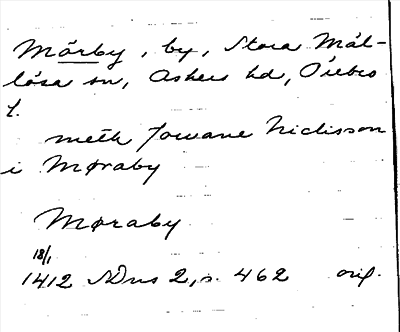 Mörby, by, Stora Mål-
lösa sn, Askers hd, Örebro
l.
meth Jowane Niclisson
i Møraby
Møraby
18/1
1412 SDns 2, s. 462 orig.